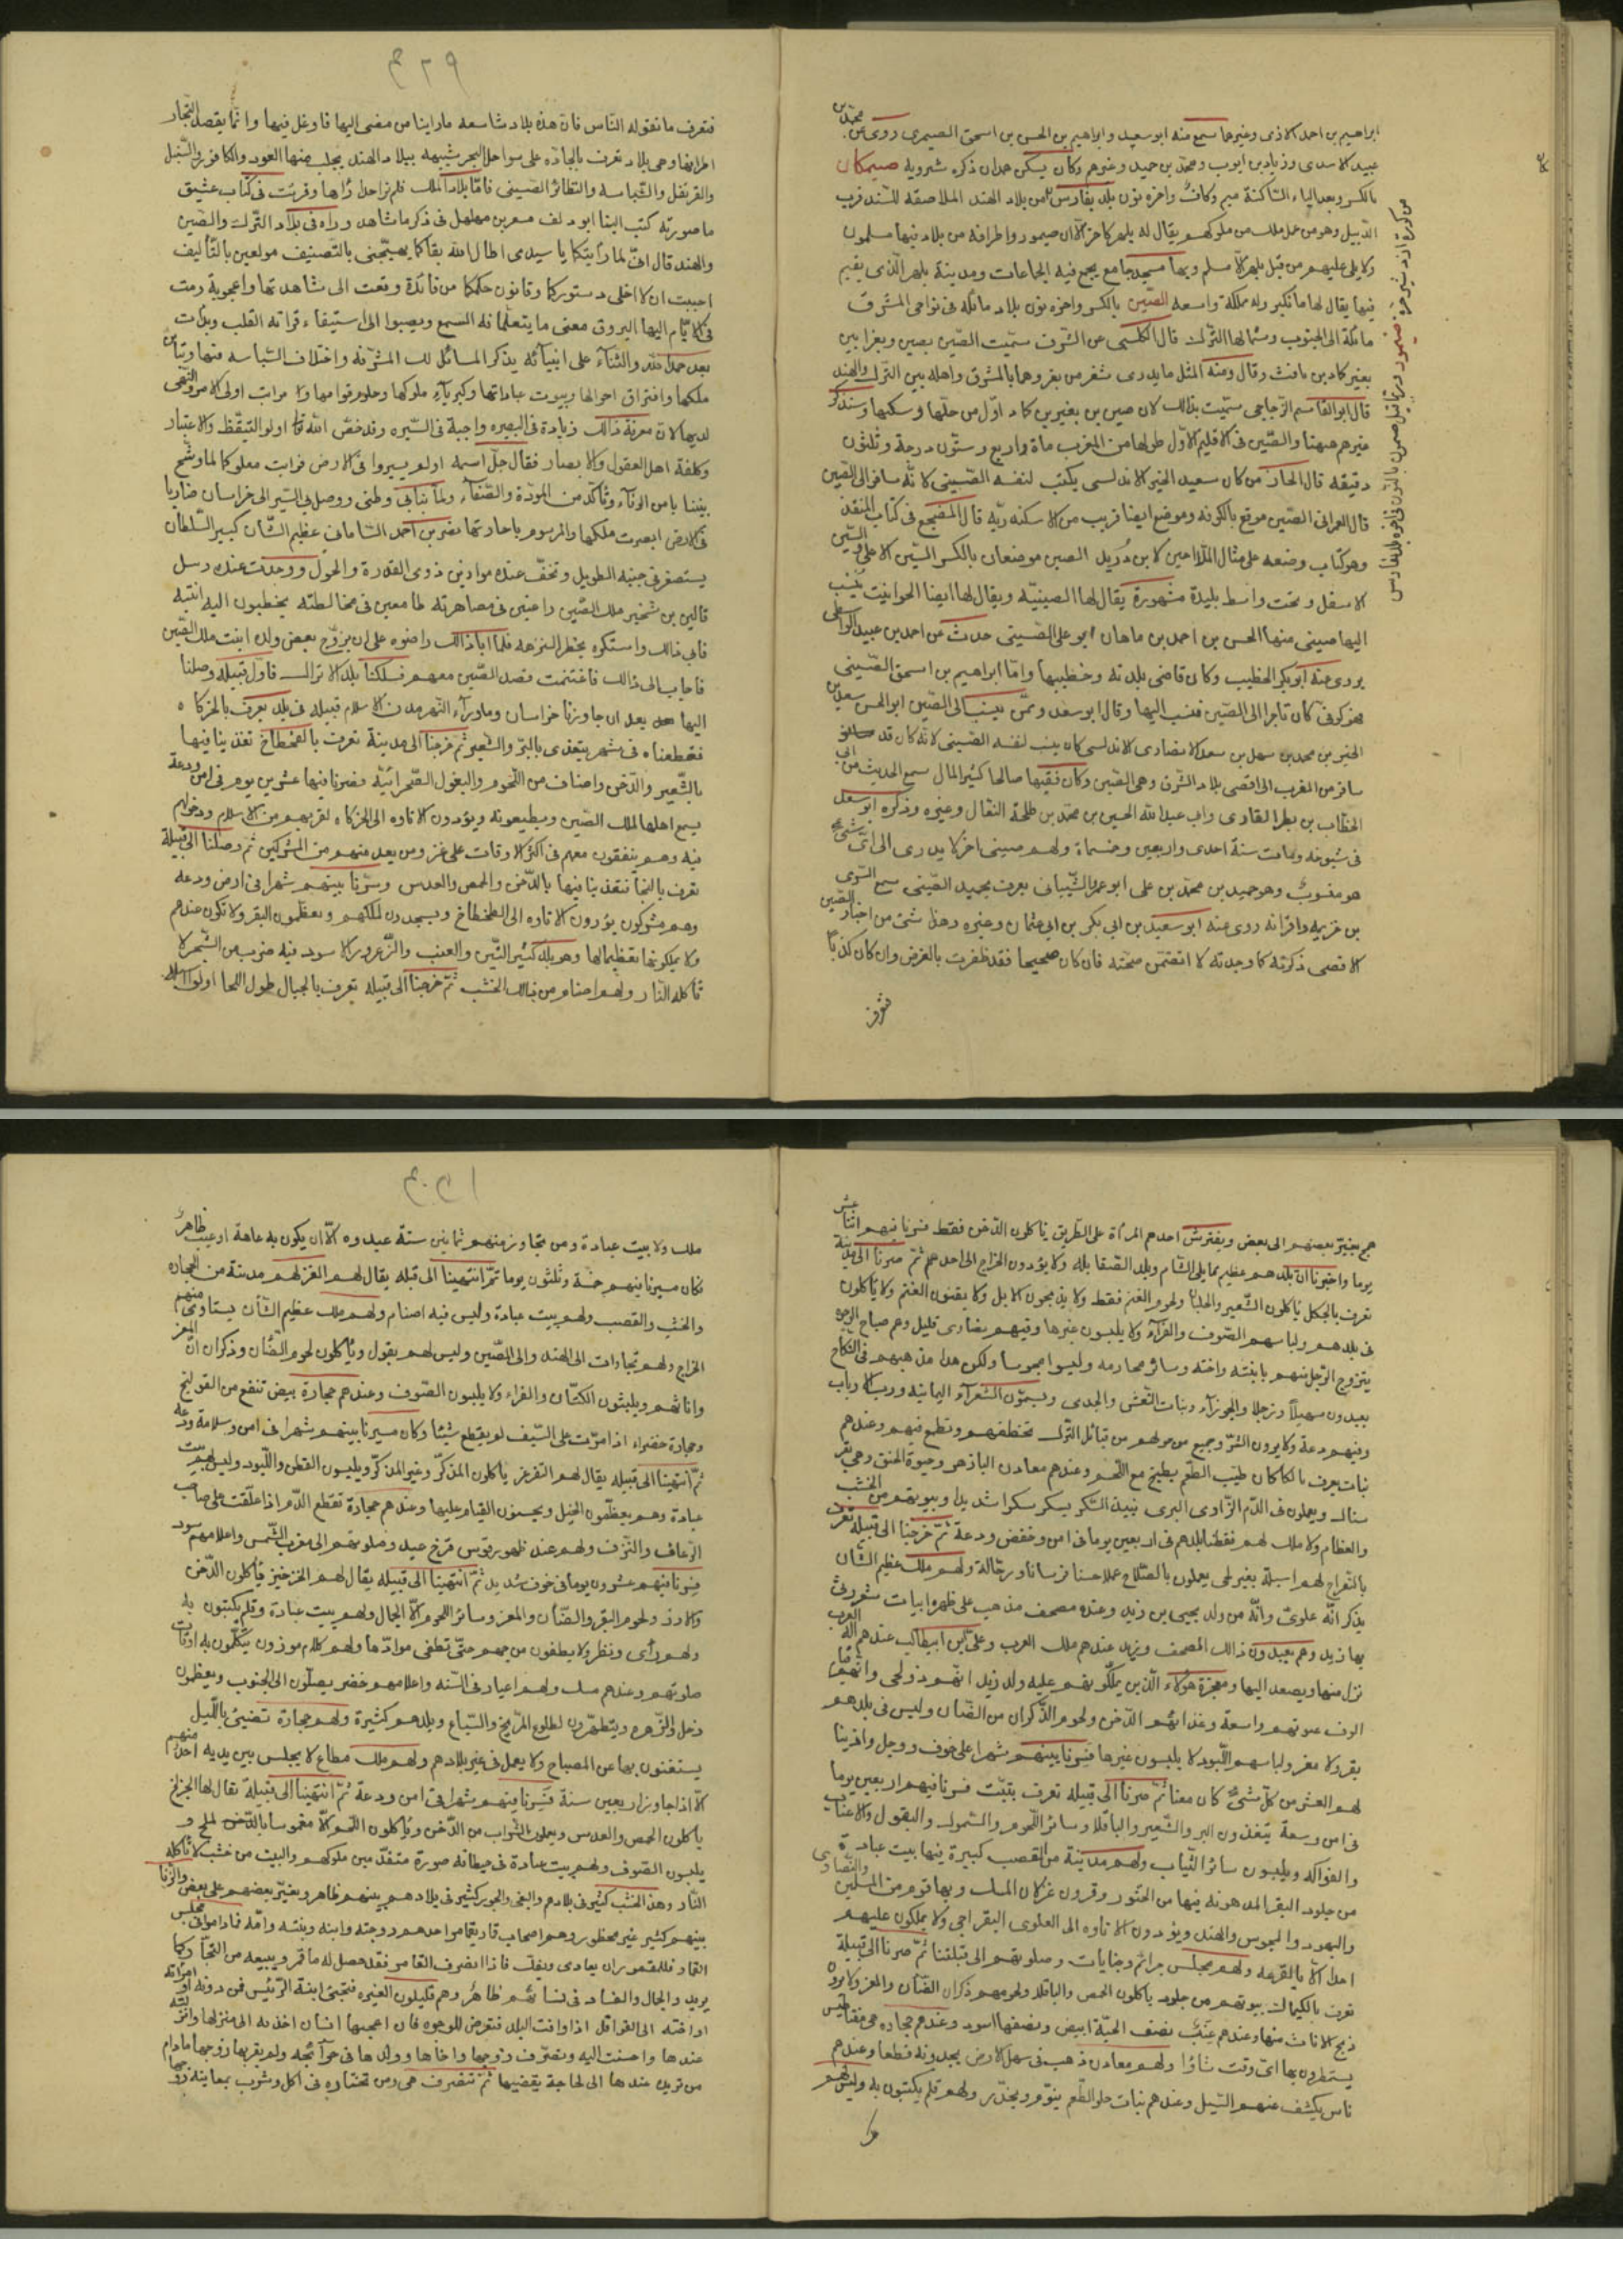 ابراهيم بن احمد الازدى وغيرهما سمع منه ابو سعيد وابراهيم بن الحسن بن اسحق الصيمرى روى عن محمد بن
عبيد الاسدى وزياد بن ايوب ومحمد بن حميد وغيرهم وكان يسكن همدان ذكره شيرويه صيمكان
بالكسر وبعد الياء الساكنة ميم وكاف واخره نون بلد بفارس من بلاد الهند الملاصقة للسند قرب
الديبل وهو من عمل ملك من ملوكهم يقال له بلهر كافر الا ان صيمور واطرافه من بلاد فيها مسلمون
ولا يلى عليهم من قبل بلهر الا مسلم وبها مسجد جامع يجمع فيه الجماعات ومدينة بلهر الذى يقيم
فيها يقال لها مانكير وله مملكة واسعة الصين بالكسر واخره نون بلاد مائله فى نواحى المشرق
مائلة الى الجنوب وشمالها الترك قال الكلبى عن الشرقى سميت الصين بصين وبغر ابنى
بغبر كماد بن يافث وقال ومنه المثل ما يدرى شغر من بغر وهما بالمشرق واهله بين الترك والهند
قال ابو القاسم الزجاجى سميت بذلك لان صين بن بغبر بن كماد اول من حلها وسكنها وسنذكر
خبرهم ههنا والصين فى الاقليم الاول طولها من المغرب ماة واربع وستون درجة وثلثون
دقيقه قال الحازمى كان سعيد الخير الاندلسى يكتب لنفسه الصينى لانه سافر الى الصين
قال العمرانى الصين موقع بالكوفه وموضع ايضا قريب من الاسكندريه قال المفجع فى كتاب المنقذ
وهو كتاب وضعه على مثال الملاحين لابن دريد الصين موضعان بالكسر الصين الاعلى والصين
الاسفل وتحت واسط بليدة مشهورة يقال لها الصينيه ويقال لها ايضا الحوانيت ينسب
اليها صينى منها الحسن بن احمد بن ماهان ابو على الصينى حدث عن احمد بن عبيد الواسطى
يروى عنه ابو بكر الخطيب وكان قاضى بلدته وخطيبها واما ابراهيم بن اسحق الصينى
فهو كوفى كان تاجرا الى الصين فنسب اليها وقال ابو سعد وممن ينسب الى الصين ابو الحسن سعد
الخير بن محمد بن سهل بن سعد الانصارى الاندلسى كان ينسب لنفسه الصينى لانه كان قد
سافر من المغرب الى اقصى بلاد الشرق وهى الصين وكان فقيها صالحا كثير المال سمع الحديث من ابى
الخطاب بن بطر القارى وابى عبد الله الحسين بن محمد بن طلحة النعالى وغيره وذكره ابو سعد
فى شيوخه ومات سنة احدى واربعين وخمسماة ولهم صينى اخر لا يدرى الى اى شىء
هو منسوب وهو حميد بن محمد بن على ابو عمرو الشيبانى يعرف بحميد الصينى سمع السرى
بن خزيمه واقرانه روى عنه ابو سعيد بن ابى بكر بن ابى عثمان وغيره وهذا شىء من اخبار الصين
الاقصى ذكرته كما وجدته لا اتضمن صحته فان كان صحيحا فقد ظفرت بالغرض وان كان كذبا
فتعرف
فتعرف ما تقوله الناس فان هذه بلاد شاسعه ما راينا من مضى اليها فاوغل فيها وانما يقصد التجار
اطرافها وهى بلاد تعرف بالجاوه على سواحل البحر شبيهه ببلاد الهند يجلب منها العود والكافور والسنبل
والقرنفل والبسباسة والعقاقير والغضائر الصينى فاما بلاد الملك فلم نر احدا راها وقرئت فى كتاب عتيق
ما صورته كتب الينا ابو دلف مسعر بن مهلهل فى ذكر ما شاهده وراه فى بلاد الترك والصين
والهند قال انى لما رايتكما يا سيدى اطال الله بقاكما لهجين بالتصنيف مولعين بالتاليف
احببت ان لا اخلى دستوركما وقانون حكمكما من فائدة وقعت الى مشاهدتها واعجوبة رمت
فى الايام اليها ليروق معنى ما يتعلمانه السمع ويصبوا الى استيفاء قراته القلب وبدات
بعد حمد الله والثناء على انبيائه بذكر المسائل لك المشرقه واختلاف السياسه فيها وتباين
ملكها وافتراق احوالها وبيوت عباداتها وكبرياء ملوكها وحلوم قوامها ومراتب اولى الامر والنهى
لديها لان معرفة ذلك زيادة فى البصيره واجبة فى السيره وقد حض الله تعالى اولو التيقظ والاعتبار
وكلفه اهل العقول والابصار فقال جل اسمه اولم يسيروا فى الارض فرايت معاونكما لما وشج
بيننا يا من الاخاء وتاكد من المودة والصفاء ولما نبا بى وطنى ووصل بى السير الى خراسان ضاربا
فى الارض ابصرت ملكها والمرسوم بامارتها نصر بن احمد السامانى عظيم الشان كبير السلطان
يستصغر فى جنبه الطويل وتخف عنده موازين ذوى القدرة والحول ووجدت عنده رسل
قالين بن شخير ملك الصين راغبين فى مصاهرته طامعين فى مخالطته يخطبون اليه ابنته
فابى ذلك واستنكره بحظر الشرعه فلما ابى ذلك راضوه على ان يزوج بعض ولده ابنت ملك الصين
فاجاب الى ذلك فاغتنمت قصد الصين معهم فسلكنا بلد الاتراك فاول قبيله وصلنا
اليها بعد ان جاوزنا خراسان وماوراء النهر مدن الاسلام قبيله فى بلد يعرف بالخركاه
فقطعناه فى شهر يتغذى بالبر والشعير ثم خرجنا الى مدينة تعرف بالطخطاخ تغذينا فيها
بالشعير والدخن واصناف من اللحوم والبقول الصحرائية فسرنا فيها عشرين يوم فى امن ودعة
يسمع اهلها لملك الصين ويطيعونه ويؤدون الاتاوه الى الخركاه لقربهم من الاسلام ودخولهم
فيه وهم يتفقون معهم فى اكثر الاوقات على غزو من بعد منهم من المشركين ثم وصلنا الى قبيلة
تعرف بالبجا فتغذينا فيها بالدخن والحمص والعدس وسرنا بينهم شهرا فى ارض ودعه
وهم مشركون يؤدون الاتاوه الى الطخطاخ ويسجدون لملكهم ويعظمون البقر ولا تكون عندهم
ولا يملكونها تعظيما لها وهو بلد كثير التين والعنب والزعرور الاسود فيه ضرب من الشجر لا
تاكله النار ولهم اصنام من ذلك الخشب ثم خرجنا الى قبيله تعرف بالجبال طول اللحا اولوا اسبلة
همج يغير بعضهم الى بعض ويفترش احدهم المراة على الطريق ياكلون الدخن فقط فسرنا فيهم اثنا عشر
يوما واخبرنا ان بلدهم عظيم مما يلى الشام وبلد الصقالبه ولا يؤدون الخراج الى احد ثم صرنا الى مدينة
تعرف بالجكل ياكلون الشعير والجلبان ولحوم الغنم فقط ولا يذبحون الابل ولا يقتنون الغنم ولا ياكلون
فى بلدهم ولباسهم الصوف والفراء ولا يلبسون غيرها وفيهم نصارى قليل وهم صباح الوجوه
يتزوج الرجل منهم بابنته واخته وسائر محارمه وليسوا مجوسا ولكن هذا مذهبهم فى النكاح
يعبدون سهيلا وزحلا والجوزاء وبنات النعش والجدى ويسمون الشعراء اليمانيه ورب الارباب
وفيهم دعة ولا يرون الشر وجميع من حولهم من قبائل الترك تتخطفهم وتطمع فيهم وعندهم
نبات يعرف بالكلكان طيب الطعم يطبخ مع اللحم وعندهم معادن البازهر وحيوة الحنق وهى بقر
هناك ويعملون من الدم الزاوى البرى نبيذ السكر يسكر سكرا شديدا وبيوتهم من الخشب
والعظام ولا ملك لهم فقطعنا بلدهم فى اربعين يوما فى امن وخفض ودعة ثم خرجنا الى قبيلة تعرف
بالبغراج لهم اسبلة بغير لحى يعملون بالسلاح عملا حسنا فرسانا ورجالة ولهم ملك عظيم الشان
يذكر انه علوى وانه من ولد يحيى بن زيد وعنده مصحف مذهب على ظهره ابيات شعر رثى
بها زيد وهم يعبدون ذلك المصحف وزيد عندهم ملك العرب وعلى ابن ابيطالب عندهم اله العرب
نزل منها ويصعد اليها ومعجزة هؤلاء الذين يملكونهم عليه ولد زيد انهم ذو لحى وانهم قيام
الوف صوتهم واسعة وغذائهم الدخن ولحوم الذكران من الضان وليس فى بلدهم
بقر ولا معز ولباسهم اللبود لا يلبسون غيرها فسرنا بينهم شهرا على خوف ووجل وادينا
لهم العشر من كل شىء كان معنا ثم صرنا الى قبيلة تعرف بتبت فسرنا فيهم اربعين يوما
فى امن وسعة يتغذون البر والشعير والباقلا وسائر اللحوم والسموك والبقول والاعناب
والفواكه ويلبسون سائر الثياب ولهم مدينة من القصب كبيرة فيها بيت عبادة
من جلود البقر المدهونه فيها من البخور وقرون غزلان المسك وبها قوم من المسلمين والنصارى
واليهود والمجوس والهند ويؤدون الاتاوه الى العلوى البغراجى ولا يملكون عليهم
احدا الا بالقرعه ولهم مجلس جرائم وجنايات وصلوتهم الى قبلتنا ثم صرنا الى قبيلة
تعرف بالكيماك بيوتهم من جلود ياكلون الحمص والباقلا ولحومهم ذكران الضان والمعز ولا يرون
ذبح الاناث منها وعندهم عنب نصف الحبة ابيض ونصفها اسود وعندهم حجاره هى مغناطيس
يستمطرون بها اى وقت شاؤا ولهم معادن ذهب فى سهل الارض يجدونه قطعا وعندهم
ناس يكشف عنهم السيل وعندهم نبات حلو الطعم ينوم ويخدر ولهم قلم يكتبون به وليس لهم
ملك ولا بيت عبادة ومن تجاوز منهم ثمانين سنة عبدوه الا ان يكون به عاهة او عيب ظاهر
فكان مسيرنا فيهم خمسة وثلثون يوما ثم انتهينا الى قبيله يقال لهم الغز لهم مدينة من الحجاره
والخشب والقصب ولهم بيت عبادة وليس فيه اصنام ولهم ملك عظيم الشان يستاوى منهم
الخراج ولهم تجارات الى الهند والى الصين وليس لهم بقول وياكلون لحوم الضان وذكران المعز
واناثهم ويلبثون الكتان والفراء ولا يلبسون الصوف وعندهم حجارة بيض تنفع من القولنج
وحجارة خضراء اذا مرت على السيف لم يقطع شيئا وكان مسيرنا بينهم شهرا فى امن وسلامة ودعه
ثم انتهينا الى قبيله يقال لهم التغزغز ياكلون المذكى وغير المذكى ويلبسون القطن واللبود وليس لهم بيت
عبادة وهم يعظمون الخيل ويحسنون القيام عليها وعندهم حجارة تقطع الدم اذا علقت على صاحب
الرعاف والنزف ولهم عند ظهور قوس قزح عيد وصلوتهم الى مغرب الشمس واعلامهم سود
فسرنا فيهم عشرون يوما فى خوف شديد ثم انتهينا الى قبيله يقال لهم الخرخيز ياكلون الدخن
والارز ولحوم البقر والضان والمعز وسائر اللحوم الا الجمال ولهم بيت عبادة وقلم يكتبون به
ولهم راى ونظر ولا يطفون سرجهم حتى تطفى موادها ولهم كلام موزون يتكلمون به اوقات
صلوتهم وعندهم مسك ولهم اعياد فى السنه واعلامهم خضر يصلون الى الجنوب ويعظمون
زحل والزهره ويتطيرون لطلوع المريخ والسباع وبلدهم كثيرة ولهم حجارة تضيئ بالليل
يستغنون بها عن المصباح ولا يعمل فى غير بلادهم ولهم ملك مطاع لا يجلس بين يديه احد منهم
الا اذا جاوز اربعين سنة فسرنا فيهم شهرا فى امن ودعة ثم انتهينا الى قبيلة يقال لها الخرلخ
ياكلون الحمص والعدس ويعملون الشراب من الدخن وياكلون اللحم الا مغموسا بالملح و
يلبسون الصوف ولهم بيت عبادة فى حيطانه صورة متقدمين ملوكهم والبيت من خشب لا تاكله
النار وهذا الخشب كثير فى بلادهم والبغى والجور كثير فى بلادهم بينهم ظاهر ويغير بعضهم على بعض والزنا
بينهم كثير غير محظور وهم اصحاب قمار يقامر احدهم زوجته وابنه وبنته وامه فما داموا فى مجلس
القمار فللمقمور ان يفادى ويفك فاذا انصرف القامر فقد حصل له ما قمر ويبيعه من التجار كما
يريد والجمال والفساد فى نسائهم ظاهر وهم قليلون الغيره فتجئ ابنة الرئيس فمن دونه او امراته
او اخته الى القوافل اذا وافت البلد فتعرض للوجوه فان اعجبها انسان اخذته الى منزلها وانزلته
عندها واحسنت اليه وتصرف زوجها واخاها وولدها فى حوائجه ولم يقربها زوجها مادام
من تريده عندها الى لحاجة يقضيها ثم تتصرف هى ومن تختاره فى اكل وشرب بمعاينة زوجها